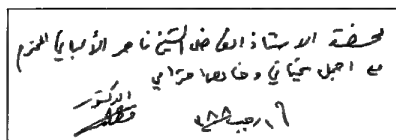 لحضرة الاستاذ الفاضل الشيخ ناصر الألباني المحترم
مع اجمل تحياتي وخالص احترامي
الدكتور
رجب ٨٨